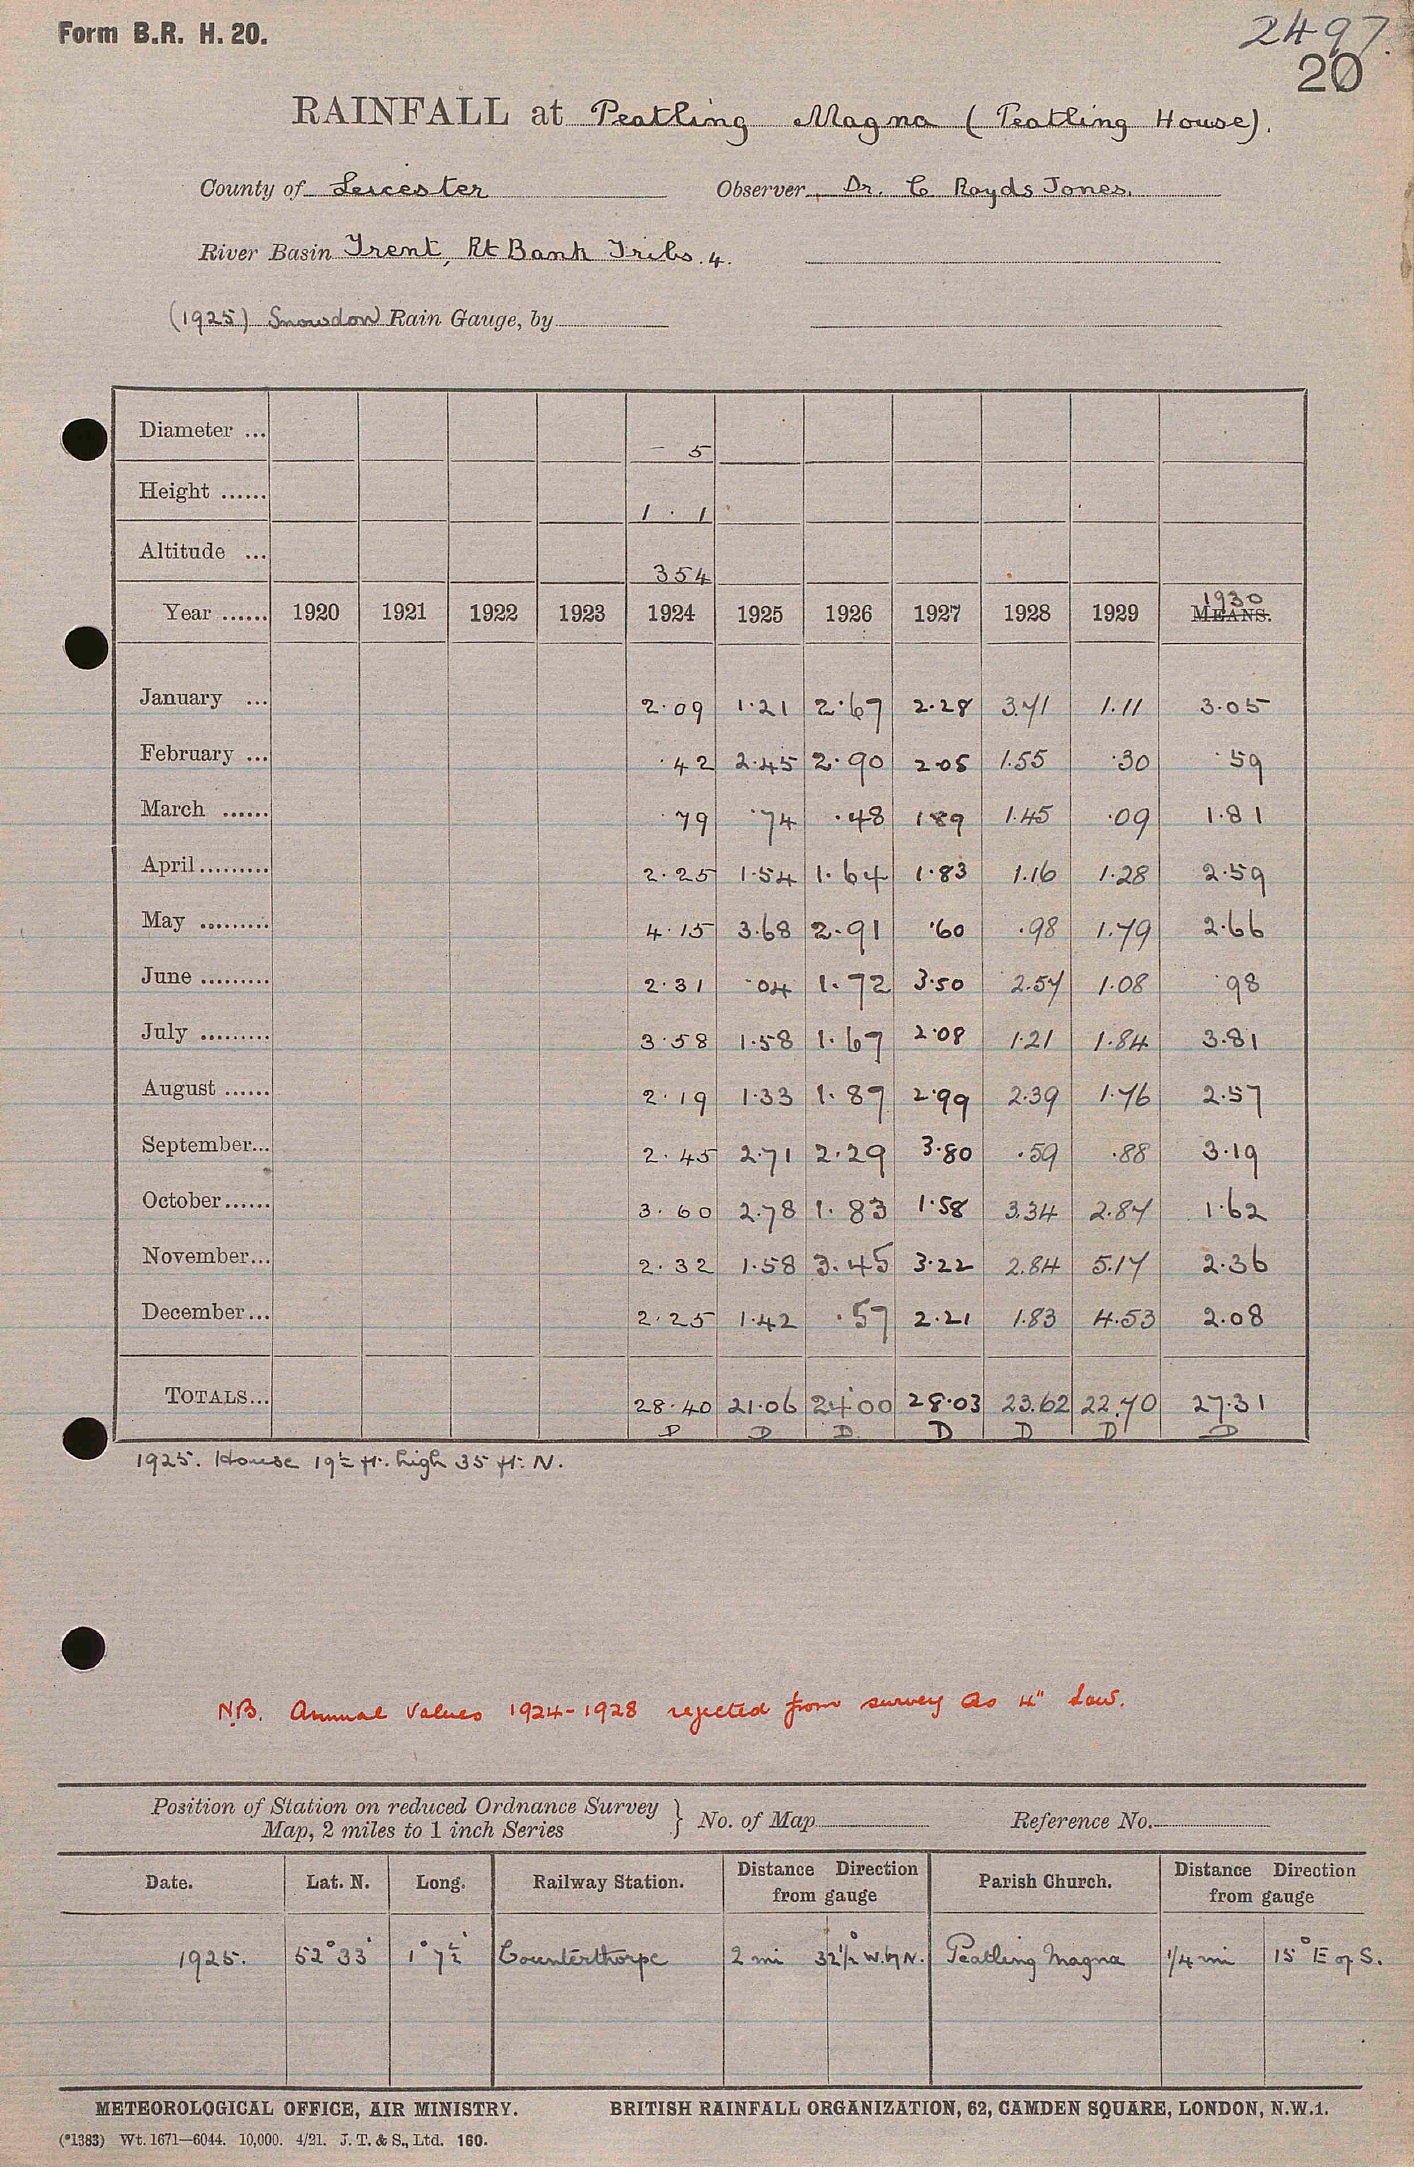 Form B.R. H. 20.
2497.
20
RAINFALL at Peatling Magna (Peatling House).
County of Leicester Observer Dr. C Royds Jones.
River Basin Trent, Rt Bank Tribs. 4.
(1925) Snowdon Rain Gauge, by
Diameter ... 5
Height ...... 1 . 1
Altitude ... 354
Year ...... 1920 1921 1922 1923 1924 1925 1926 1927 1928 1929 MEANS. 1930
January ... 2.09 1.21 2.67 2.28 3.71 1.11 3.05
February ... .42 2.45 2.90 2.05 1.55 .30 .59
March ...... .79 .74 .48 1.89 1.45 .09 1.81
April ......... 2.25 1.54 1.64 1.83 1.16 1.28 2.59
May ......... 4.15 3.68 2.91 .60 .98 1.79 2.66
June ......... 2.31 .04 1.72 3.50 2.57 1.08 .98
July ......... 3.58 1.58 1.67 2.08 1.21 1.84 3.81
August ...... 2.19 1.33 1.87 2.99 2.39 1.76 2.57
September... 2.45 2.71 2.29 3.80 .59 .88 3.19
October...... 3.60 2.78 1.83 1.58 3.34 2.87 1.62
November... 2.32 1.58 3.45 3.22 2.84 5.17 2.36
December... 2.25 1.42 .57 2.21 1.83 4.53 2.08
TOTALS... 28.40 21.06 24.00 28.03 23.62 22.70 27.31
D D D D D D D
1925. House 19½ ft. high 35 ft. N.
N.B. Annual Values 1924-1928 rejected from survey as 4" low.
Position of Station on reduced Ordnance Survey
Map, 2 miles to 1 inch Series } No. of Map Reference No.
Date. Lat. N. Long. Railway Station. Distance Direction from gauge Parish Church. Distance Direction from gauge
1925. 52° 33' 1° 7½' Counterthorpe 2 mi 32½° W. by N. Peatling Magna 1/4 mi 15° E of S.
METEOROLOGICAL OFFICE, AIR MINISTRY. BRITISH RAINFALL ORGANIZATION, 62, CAMDEN SQUARE, LONDON, N.W.1.
(*1383) Wt. 1671—6044. 10,000. 4/21. J. T. & S., Ltd. 160.